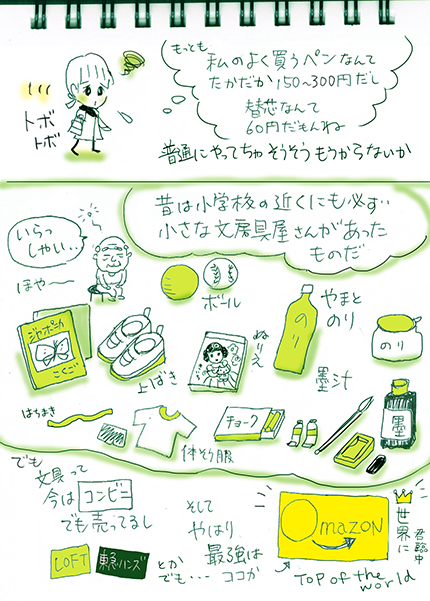 もっとも
私のよく買うペンなんて
たかだか150〜300円だし
替芯なんて
60円だもんね
トボ
トボ
普通にやってちゃそうそうもうからないか
昔は小学校の近くにも必ず
小さな文房具屋さんがあった
ものだ
いらっ
しゃい…
ほやー
ボール
やまと
のり
のり
のり
ジャポニカ
こくご
上ばき
ぬりえ
墨汁
墨
はちまき
体そう服
チョーク
でも
文具って
今はコンビニ
でも売ってるし
LOFT
東急ハンズ
とか
でも…
そして
やはり
最強は
ココか
mazon
世界に
君臨中
TOP of the
world